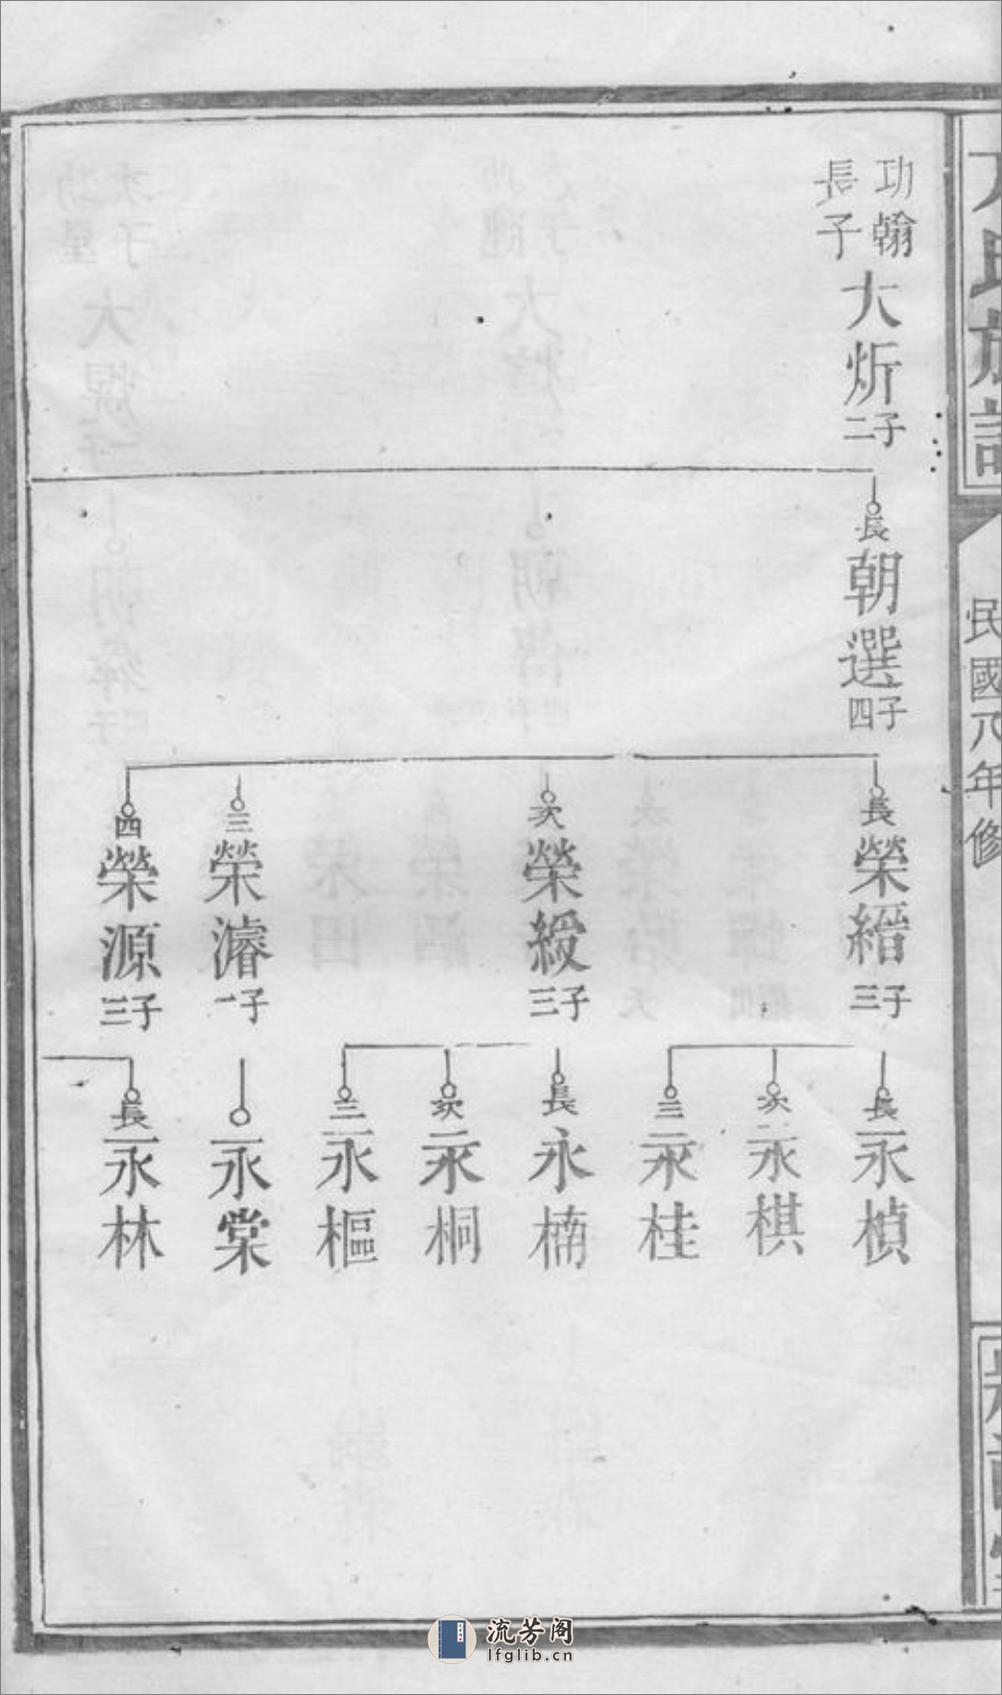 氏族譜
民國八年修
功翰
長子
大炘
二子
長
朝選
四子
長
榮縉
三子
次
榮綬
三子
三
榮濬
一子
四
榮源
三子
長
永楨
次
永棋
三
永桂
長
永楠
次
永桐
三
永樞
永棠
長
永林
流芳阁
lfglib.cn